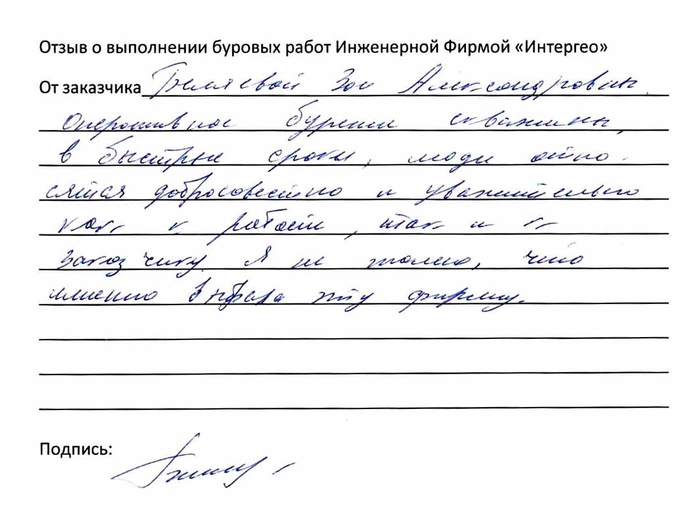 Отзыв о выполнении буровых работ Инженерной Фирмой «Интергео»
От заказчика Беляевой Зои Александровны.
Оперативное бурение скважины,
в быстрые сроки, люди отно-
сятся добросовестно и уважительно
как к работе, так и к
заказчику. Я не жалею, что
именно выбрала эту фирму.
Подпись: